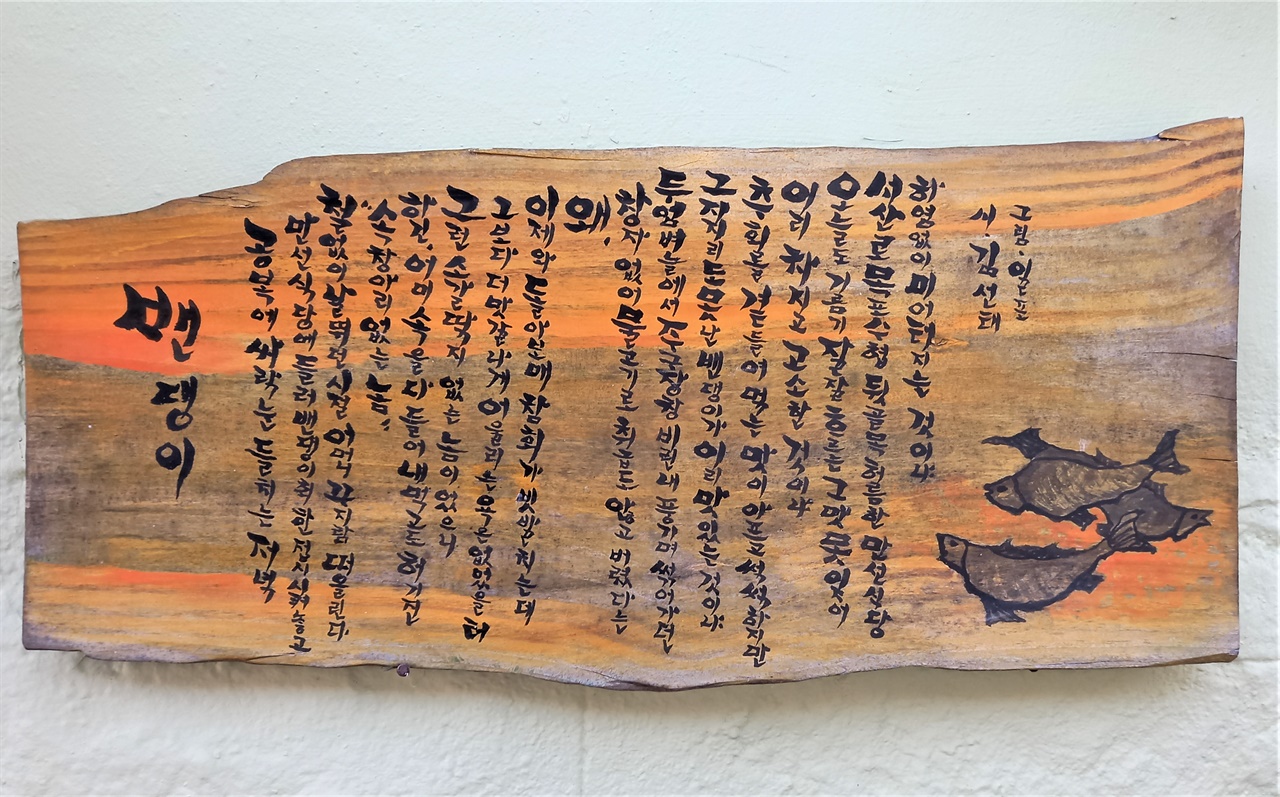 밴댕이
공복에 싸락눈 들치는 저녁
만선식당에 들러 밴댕이회 한 접시 시켜놓고
철없이 날뛰던 시절 어머니 꾸지람 떠올린다.
"속창아리 없는 놈"
하긴 어머니 속을 다 들어내먹고도 허기진
그런 소갈딱지 없는 놈이었으니
그보다 더 맛깔나게 어울리는 욕은 없었을 터
이제와 돌아보매 참회가 빗발치는데
왜,
창자 없어 물고기로 쳐주도 않고 버렸다는
두엄벼늘에서 주구장창 비린내 풍기며 썩어가던
그 지지리도 못난 밴댕이가 이리 맛있는 것이냐
추회를 곁들여 먹는 맛이 아프고
이리 차지고 고소한 것이냐
오늘도 기름기 잘잘 흐르는 그 맛 못잊어
서산동 목포수협 뒷골목 허름한 만선식당
하염없이 미어터지는 것이냐
시 김선태
그림·